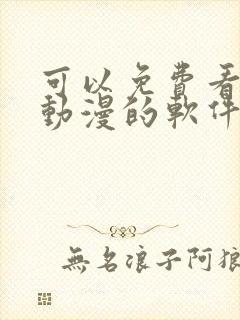 可以免費看
動漫的軟件
無名浪子阿狼